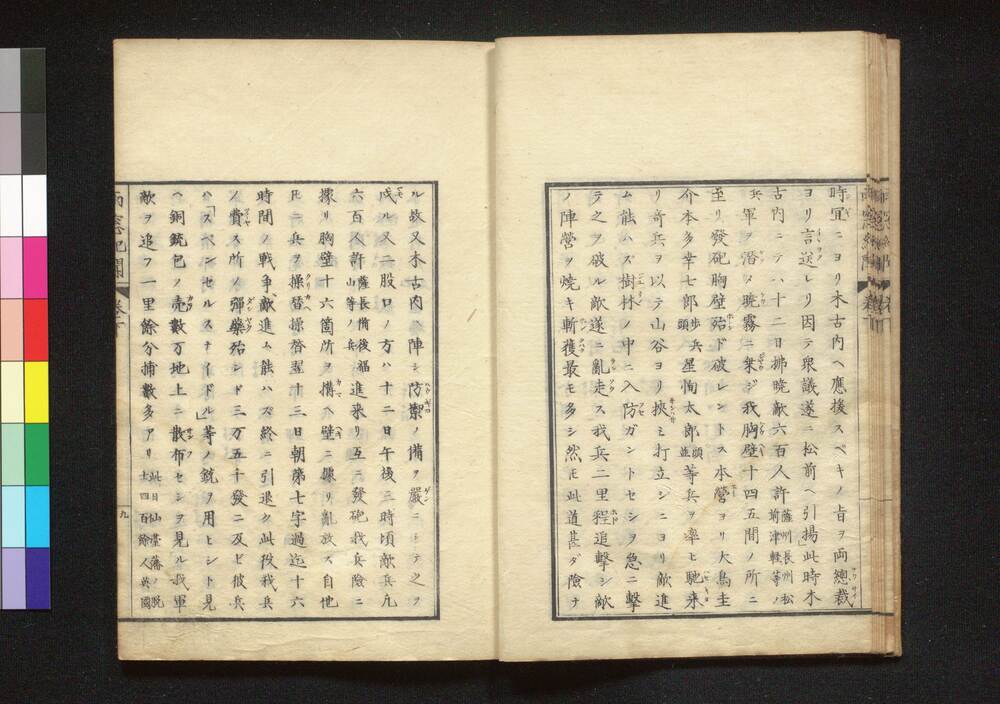 時宜ニヨリ木古内ヘ應援スベキノ旨ヲ両總裁
ヨリ言送レリ因テ衆議遂ニ松前ヘ引揚此時木
古内ニテハ十二日拂曉敵六百人許薩州長州松前津軽等ノ
兵軍ヲ潜メ曉霧ニ乗ジ我胸壁十四五間ノ所ニ
至リ發砲胸壁殆ド破レントス本營ヨリ大鳥圭
介本多幸七郎歩兵頭星恂太郎頭並等兵ヲ率ヒ馳来
リ奇兵ヲ以テ山谷ヨリ挾ミ打立シニヨリ敵進
ム能ハズ樹林ノ中ニ入防ガントセシヲ急ニ擊
テ之ヲ破ル敵遂ニ亂走ス我兵二里程追擊シ敵
ノ陣營ヲ焼キ斬獲最モ多シ然𪜈此道甚ダ險ナ
ル故又木古内ヘ陣シ防禦ノ備ヲ嚴ニシテ之ヲ
戍ル又二股口ノ方ハ十二日午後三時頃敵兵凡
六百人許薩長備後福山等ノ兵進来リ互ニ發砲我兵險ニ
據リ胸壁十六箇所ヲ構ヘ壁ニ據リ亂放ス自他
𪜈ニ兵ヲ操替操替翌十三日朝第七字過迄十六
時間ノ戦争敵進ム能ハズ終ニ引退ク此役我兵
ノ費ス所ノ彈藥殆ンド三万五千發ニ及ビ彼兵
ハ「スペンセルスナイドル」等ノ銃ヲ用ヒシト見
ヘ銅銃包ノ売數万地上ニ散布セシヲ見ル我軍
敵ヲ追フ一里餘分捕數多アリ此日仙臺藩ノ脱士四百餘人英國
九